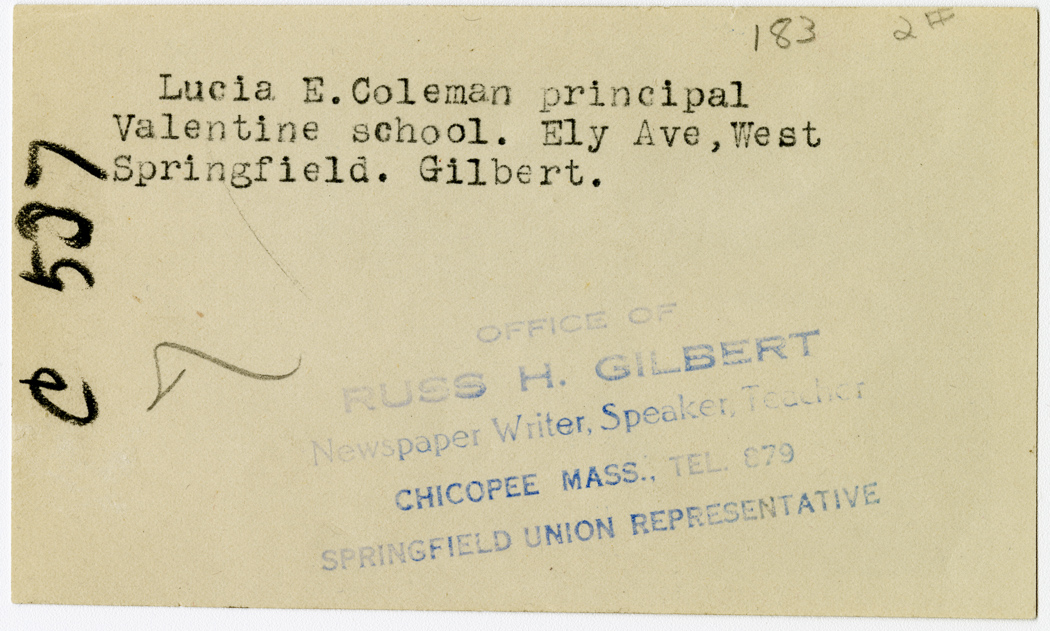 183 2#
Lucia E.Coleman principal
Valentine school. Ely Ave,West
Springfield. Gilbert.
OFFICE OF
RUSS H. GILBERT
Newspaper Writer, Speaker, Teacher
CHICOPEE MASS., TEL. 879
SPRINGFIELD UNION REPRESENTATIVE